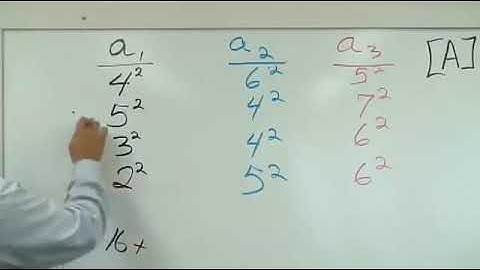 a₁ a₂ a₃ [A]
4² 6² 5²
5² 4² 7²
3² 4² 6²
2² 5² 6²
16+